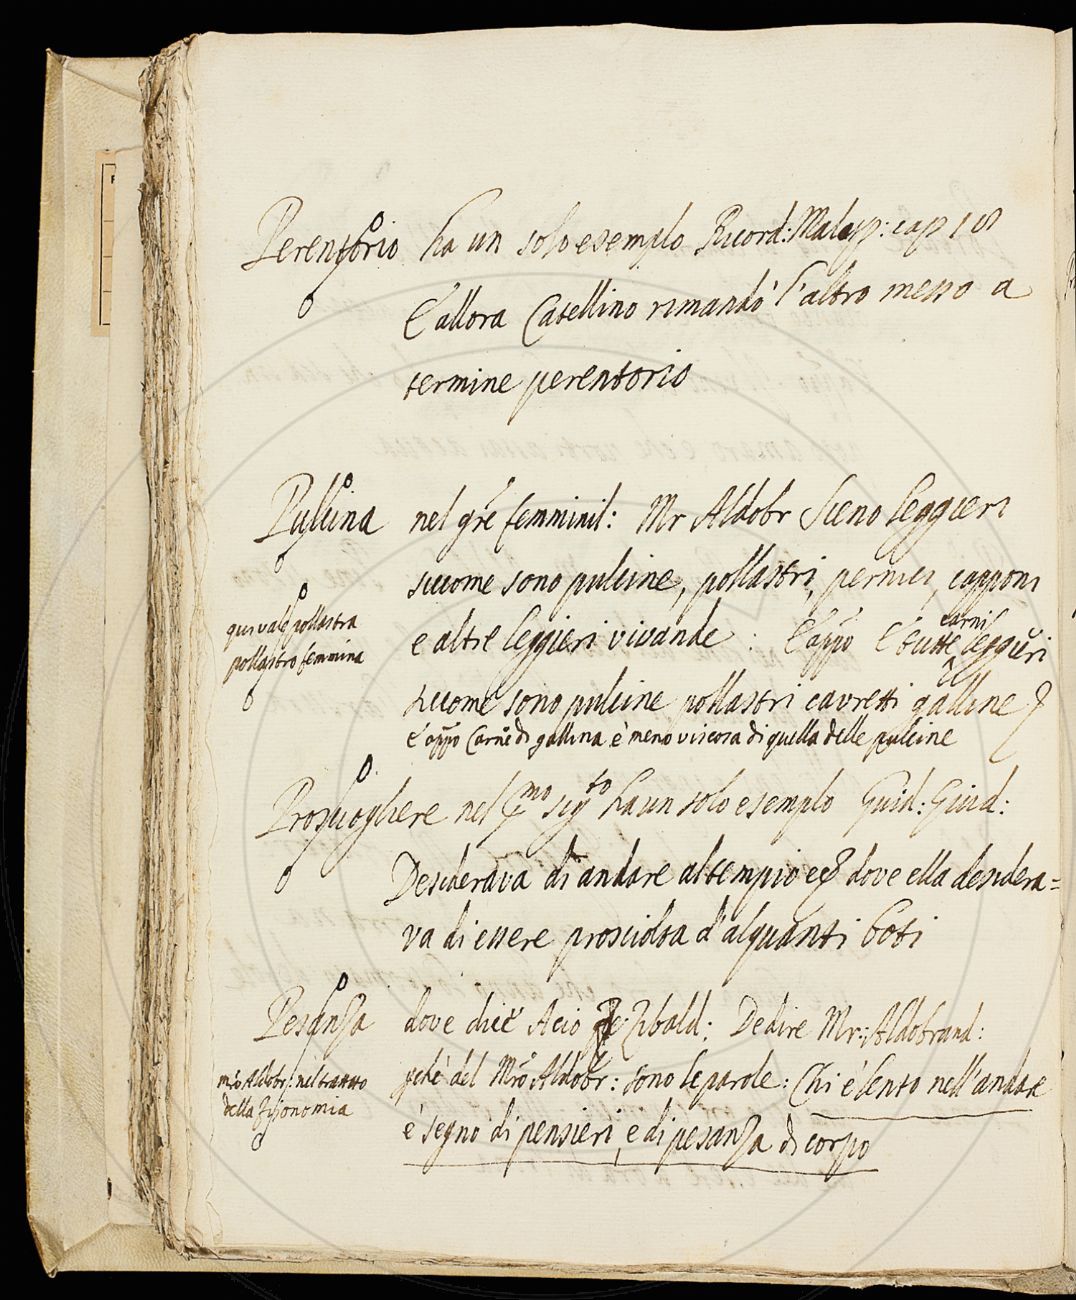 Perentorio ha un solo esemplo Ricord: Malesp: cap 108
E allora Catellino rimandò l'altro messo a
termine perentorio
Pulcina nel gr̃e femminil: Mr Aldobr Sieno leggieri
siccome sono pulcine, pollastri, pernici, capponi
qui vale pollastra
pollastro femmina
e altre leggieri vivande : E app̃o E tutte carni leggieri
siccome sono pulcine pollastri cavretti galline
E app̃o Carne di gallina è meno viscosa di quella delle pulcine
Prosciogliere nel pmo sigto ha un solo esemplo Guid: Giud:
Desiderava di andare al tempio ec dove ella desidera=
va di essere prosciolta d'alquanti boti
Pesanza dove dice Acio Zibald: Dedire Mr: Aldobrand:
mro Aldobr: nel trattato
della Fisonomia
pchè del Mro Aldobr: sono le parole: Chi è lento nell'andare
è segno di pensieri, e di pesanza di corpo